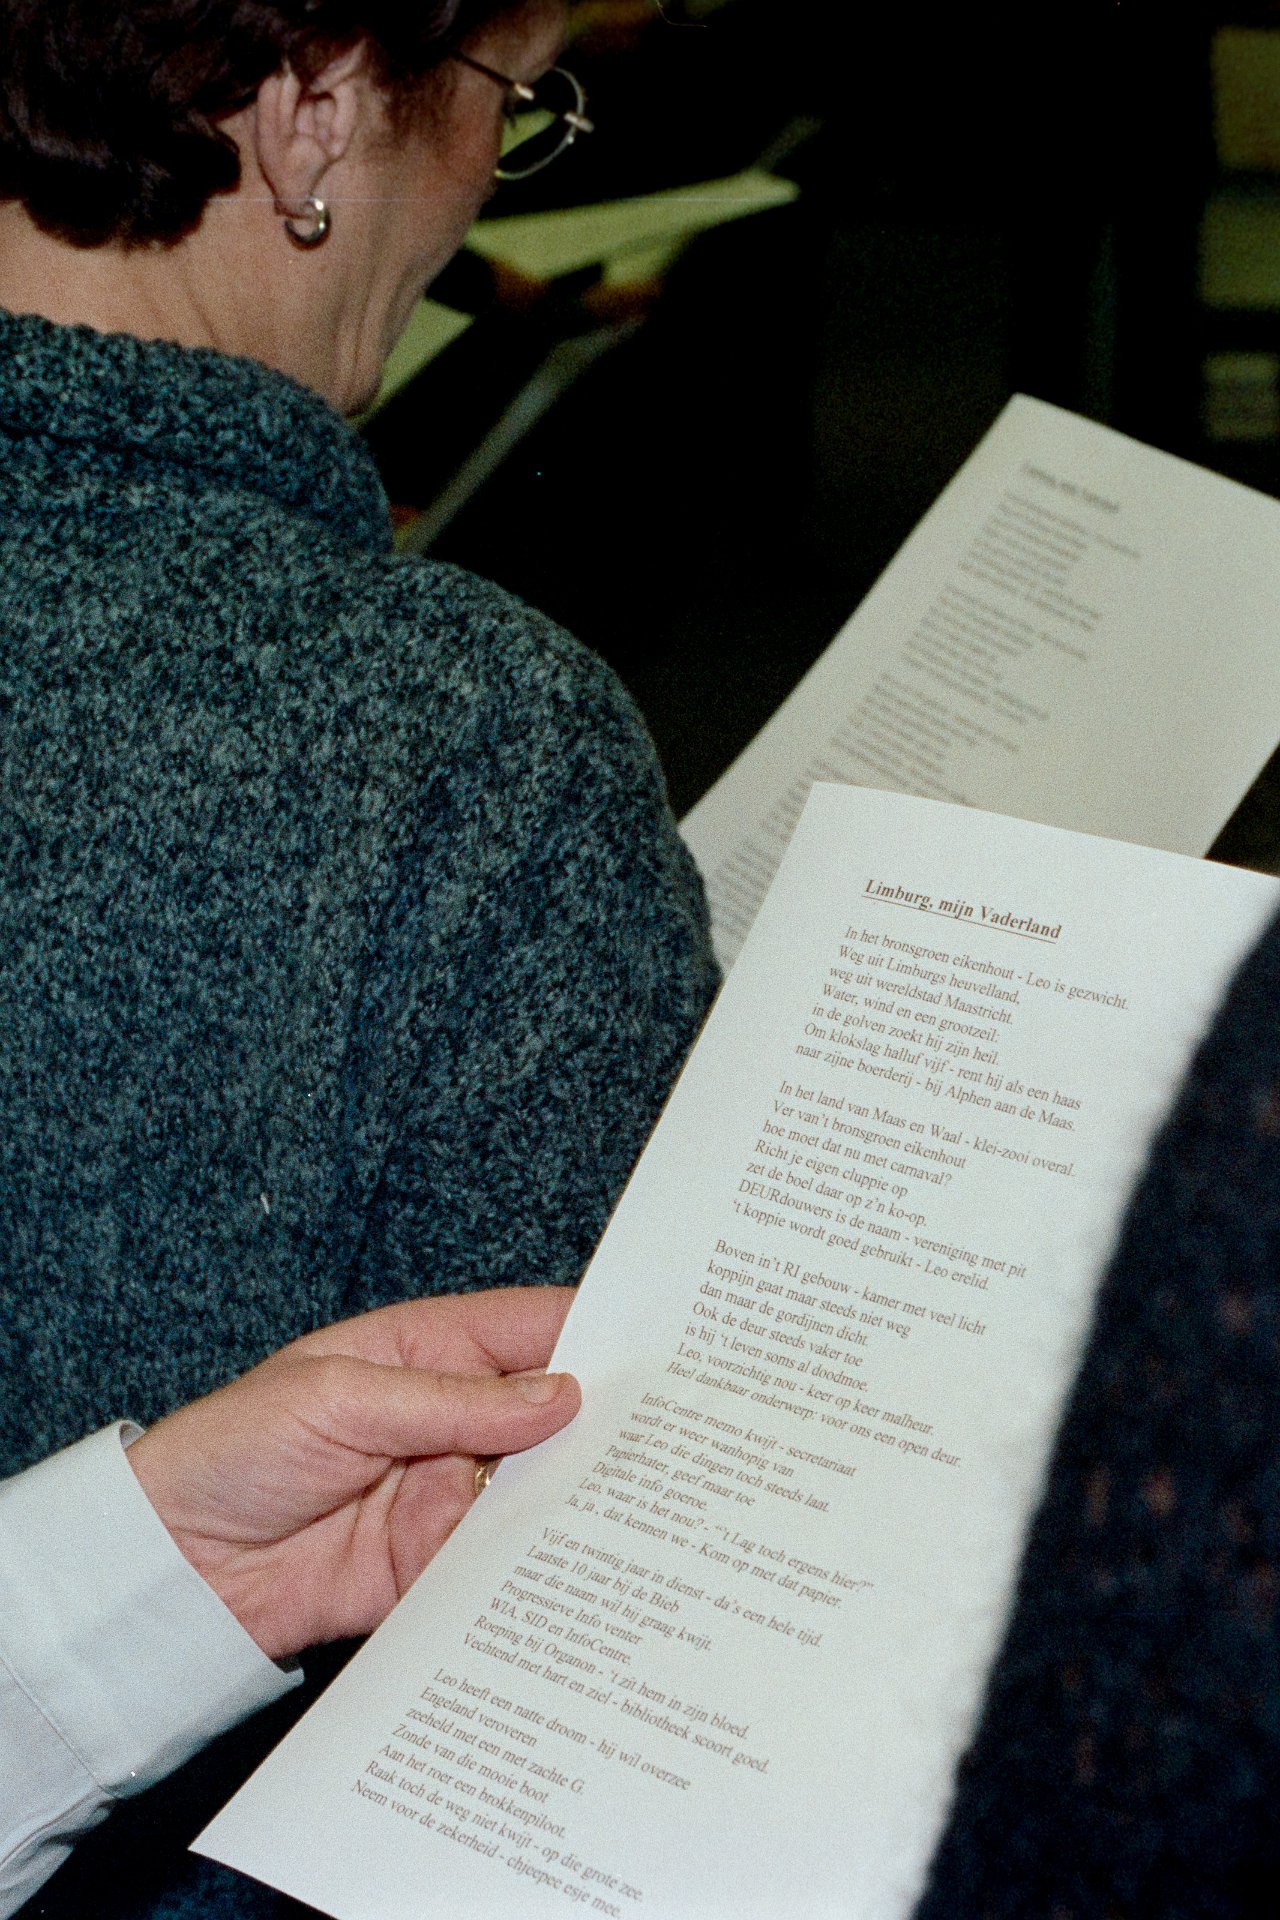 Limburg, mijn Vaderland
In het bronsgroen eikenhout - Leo is gezwicht.
Weg uit Limburgs heuvelland,
weg uit wereldstad Maastricht.
Water, wind en een grootzeil:
in de golven zoekt hij zijn heil.
Om klokslag halluf vijf - rent hij als een haas
naar zijne boerderij - bij Alphen aan de Maas.
In het land van Maas en Waal - klei-zooi overal.
Ver van't bronsgroen eikenhout
hoe moet dat nu met carnaval?
Richt je eigen cluppie op
zet de boel daar op z'n ko-op.
DEURdouwers is de naam - vereniging met pit
't koppie wordt goed gebruikt - Leo erelid.
Boven in't RI gebouw - kamer met veel licht
koppijn gaat maar steeds niet weg
dan maar de gordijnen dicht.
Ook de deur steeds vaker toe
is hij 't leven soms al doodmoe.
Leo, voorzichtig nou - keer op keer malheur.
Heel dankbaar onderwerp: voor ons een open deur.
InfoCentre memo kwijt - secretariaat
wordt er weer wanhopig van
waar Leo die dingen toch steeds laat.
Papierhater, geef maar toe
Digitale info goeroe.
Leo, waar is het nou? - "'t Lag toch ergens hier?"
Ja, ja , dat kennen we - Kom op met dat papier.
Vijf en twintig jaar in dienst - da's een hele tijd.
Laatste 10 jaar bij de Bieb
maar die naam wil hij graag kwijt.
Progressieve Info venter
WIA, SID en InfoCentre.
Roeping bij Organon - 't zit hem in zijn bloed.
Vechtend met hart en ziel - bibliotheek scoort goed.
Leo heeft een natte droom - hij wil overzee
Engeland veroveren
zeeheld met een met zachte G.
Zonde van die mooie boot
Aan het roer een brokkenpiloot.
Raak toch de weg niet kwijt - op die grote zee.
Neem voor de zekerheid - chjeepee esje mee.